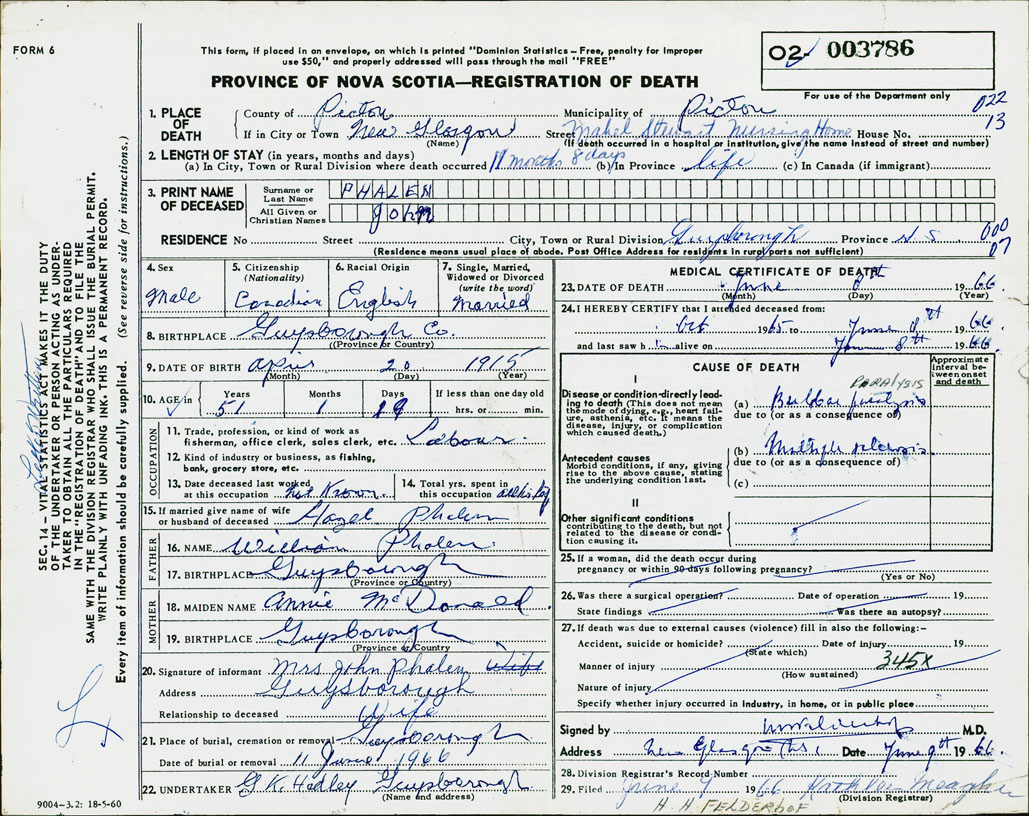 FORM 6
This form, if placed in an envelope, on which is printed "Dominion Statistics – Free, penalty for improper
use $50," and properly addressed will pass through the mail "FREE"
PROVINCE OF NOVA SCOTIA—REGISTRATION OF DEATH
02 003786
For use of the Department only
022
13
1. PLACE OF DEATH
County of Pictou Municipality of Pictou
If in City or Town New Glasgow Street Mabel Stewart Nursing Home House No.
(Name) (If death occurred in a hospital or institution, give the name instead of street and number)
2. LENGTH OF STAY (in years, months and days)
(a) In City, Town or Rural Division where death occurred 11 months 8 days (b) In Province life (c) In Canada (if immigrant)
3. PRINT NAME OF DECEASED
Surname or Last Name PHALEN
All Given or Christian Names John
RESIDENCE No Street City, Town or Rural Division Guysborough Province N.S. 000
07
(Residence means usual place of abode. Post Office Address for residents in rural parts not sufficient)
4. Sex Male
5. Citizenship (Nationality) Canadian
6. Racial Origin English
7. Single, Married, Widowed or Divorced (write the word) Married
8. BIRTHPLACE Guysborough Co.
(Province or Country)
9. DATE OF BIRTH April 20 1915
(Month) (Day) (Year)
10. AGE in Years Months or Days If less than one day old
51 1 19 hrs. or min.
OCCUPATION
11. Trade, profession, or kind of work as
fisherman, office clerk, sales clerk, etc. Labour
12. Kind of industry or business, as fishing,
bank, grocery store, etc.
13. Date deceased last worked at this occupation not Known
14. Total yrs. spent in this occupation all his life
15. If married give name of wife
or husband of deceased Hazel Phalen
FATHER
16. NAME William Phalen
17. BIRTHPLACE Guysborough
(Province or Country)
MOTHER
18. MAIDEN NAME Annie McDonald
19. BIRTHPLACE Guysborough
(Province or Country)
20. Signature of informant Mrs John Phalen Wife
Address Guysborough
Relationship to deceased Wife
21. Place of burial, cremation or removal Guysborough
Date of burial or removal 11 June 1966
22. UNDERTAKER G.K. Hadley Guysborough
(Name and address)
MEDICAL CERTIFICATE OF DEATH
23. DATE OF DEATH June 8th 1966
(Month) (Day) (Year)
24. I HEREBY CERTIFY that I attended deceased from:
Oct 1965 to June 8th 1966
and last saw h im alive on June 8th 1966
CAUSE OF DEATH
Approximate interval between onset and death
I
Disease or condition directly leading to death (This does not mean the mode of dying, e.g., heart failure, asthenia, etc. It means the disease, injury, or complication which caused death.)
PARALYSIS
(a) Bulbar paralysis
due to (or as a consequence of)
Antecedent causes
Morbid conditions, if any, giving rise to the above cause, stating the underlying condition last.
(b) Multiple sclerosis
due to (or as a consequence of)
(c)
II
Other significant conditions
contributing to the death, but not related to the disease or condition causing it.
25. If a woman, did the death occur during
pregnancy or within 90 days following pregnancy?
(Yes or No)
26. Was there a surgical operation? Date of operation 19
State findings Was there an autopsy?
27. If death was due to external causes (violence) fill in also the following:-
Accident, suicide or homicide? Date of injury 19
(State which)
345X
Manner of injury
(How sustained)
Nature of injury
Specify whether injury occurred in industry, in home, or in public place
Signed by M.D.
Address New Glasgow N.S. Date June 9th 1966
28. Division Registrar's Record Number
29. Filed June 9 1966 Meagher
(Division Registrar)
H. H. FELDERHOF
9004-3.2: 18-5-60
SEC. 14 – VITAL STATISTICS ACT MAKES IT THE DUTY
OF THE UNDERTAKER OR PERSON ACTING AS UNDER-
TAKER TO OBTAIN ALL THE PARTICULARS REQUIRED
IN THE "REGISTRATION OF DEATH" AND TO FILE THE
SAME WITH THE DIVISION REGISTRAR WHO SHALL ISSUE THE BURIAL PERMIT.
WRITE PLAINLY WITH UNFADING INK. THIS IS A PERMANENT RECORD.
Every item of information should be carefully supplied. (See reverse side for instructions.)